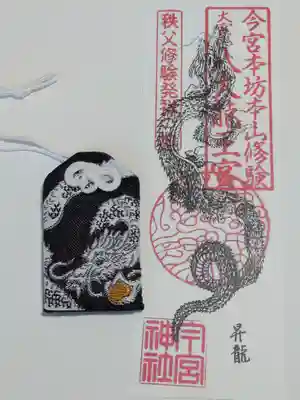 今宮本坊本山修験
大宮
八大龍王宮
秩父修験発祥
昇龍
今宮
神社